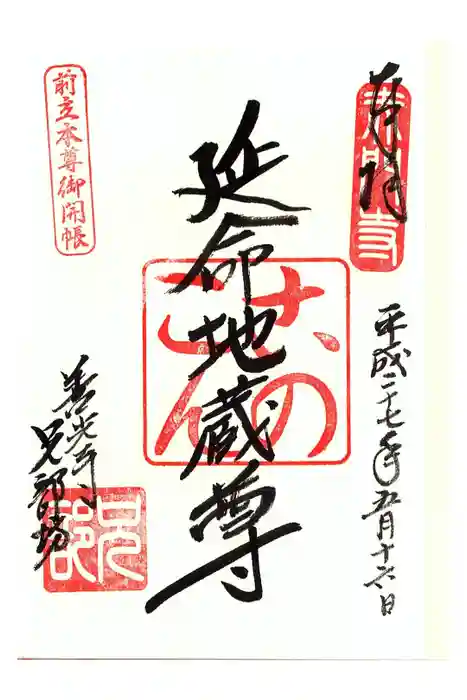 奉拝
平成二十七年五月十六日
延命地蔵尊
前立本尊御開帳
善光寺
兄部坊
兄部